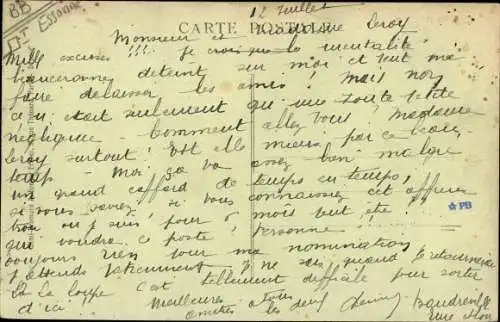 12 Juillet
CARTE POSTALE
Monsieur et Madame Leroy
Mille excuses !!! Je crois que la mentalité
déteint sur moi et veut me
faire délaisser les amis ! Mais non
c'était seulement qu'une toute petite
négligence - Comment allez vous ? Madame
Leroy surtout ! Est elle mieux par ce beau
temps - Moi ça va assez bien malgré
un grand caffard de temps en temps,
si vous saviez, si vous connaissiez cet affreux
trou où j'suis pour 6 mois peut être !
qui voudra ce poste ? Personne !
toujours rien pour ma nomination
J'attends patiemment. Je ne sais quand je retournerai
à La Loupe c'est tellement difficile pour sortir
d'ici Meilleures
amitiés à tous les deux
PB